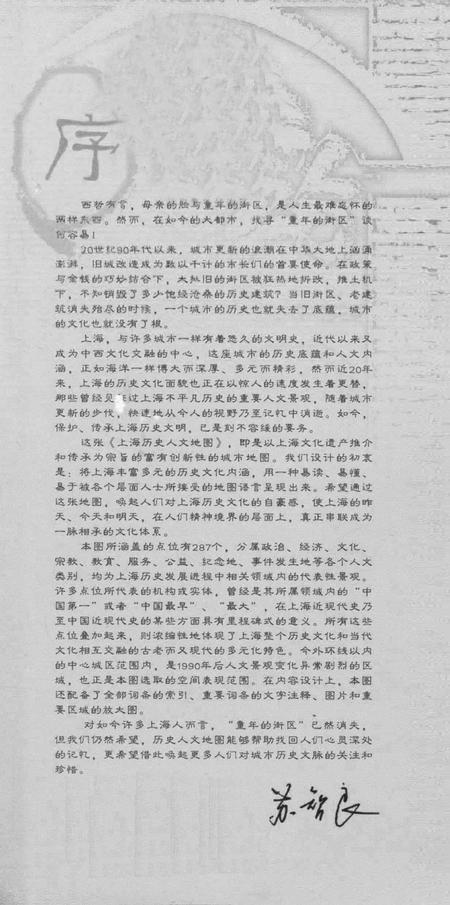 序
西哲有言，母亲的脸与童年的街区，是人生最难忘怀的
两样东西。然而，在如今的大都市，找寻“童年的街区”谈
何容易！
20世纪90年代以来，城市更新的浪潮在中华大地上汹涌
澎湃，旧城改造成为数以千计的市长们的首要使命。在政策
与金钱的巧妙结合下，大批旧的街区被狂热地拆改，推土机
下，不知销毁了多少饱经沧桑的历史建筑？当旧街区、老建
筑消失殆尽的时候，一个城市的历史也就失去了底蕴，城市
的文化也就没有了根。
上海，与许多城市一样有着悠久的文明史，近代以来又
成为中西文化交融的中心，这座城市的历史底蕴和人文内
涵，正如海洋一样博大而深厚、多元而精彩，然而近20年
来，上海的历史文化面貌也正在以惊人的速度发生着更替，
那些曾经见证过上海不平凡历史的重要人文景观，随着城市
更新的步伐，快速地从今人的视野乃至记忆中消逝。如今，
保护、传承上海历史文明，已是刻不容缓的要务。
这张《上海历史人文地图》，即是以上海文化遗产推介
和传承为宗旨的富有创新性的城市地图。我们设计的初衷
是：将上海丰富多元的历史文化内涵，用一种易读、易懂、
易于被各个层面人士所接受的地图语言呈现出来。希望通过
这张地图，唤起人们对上海历史文化的自豪感，使上海的昨
天、今天和明天，在人们精神境界的层面上，真正串联成为
一脉相承的文化体系。
本图所涵盖的点位有287个，分属政治、经济、文化、
宗教、教育、服务、公益、纪念地、事件发生地等各个人文
类别，均为上海历史发展进程中相关领域内的代表性景观。
许多点位所代表的机构或实体，曾经是其所属领域内的“中
国第一”或者“中国最早”、“最大”，在上海近现代史乃
至中国近现代史的某些方面具有里程碑式的意义。所有这些
点位叠加起来，则浓缩性地体现了上海整个历史文化和当代
文化相互交融的古老而又现代的多元化特色。今外环线以内
的中心城区范围内，是1990年后人文景观变化异常剧烈的区
域，也正是本图选取的空间表现范围。在内容设计上，本图
还配备了全部词条的索引、重要词条的文字注释、图片和重
要区域的放大图。
对如今许多上海人而言，“童年的街区”已然消失，
但我们仍然希望，历史人文地图能够帮助找回人们心灵深处
的记忆，更希望借此唤起更多人们对城市历史文脉的关注和
珍惜。
苏智良